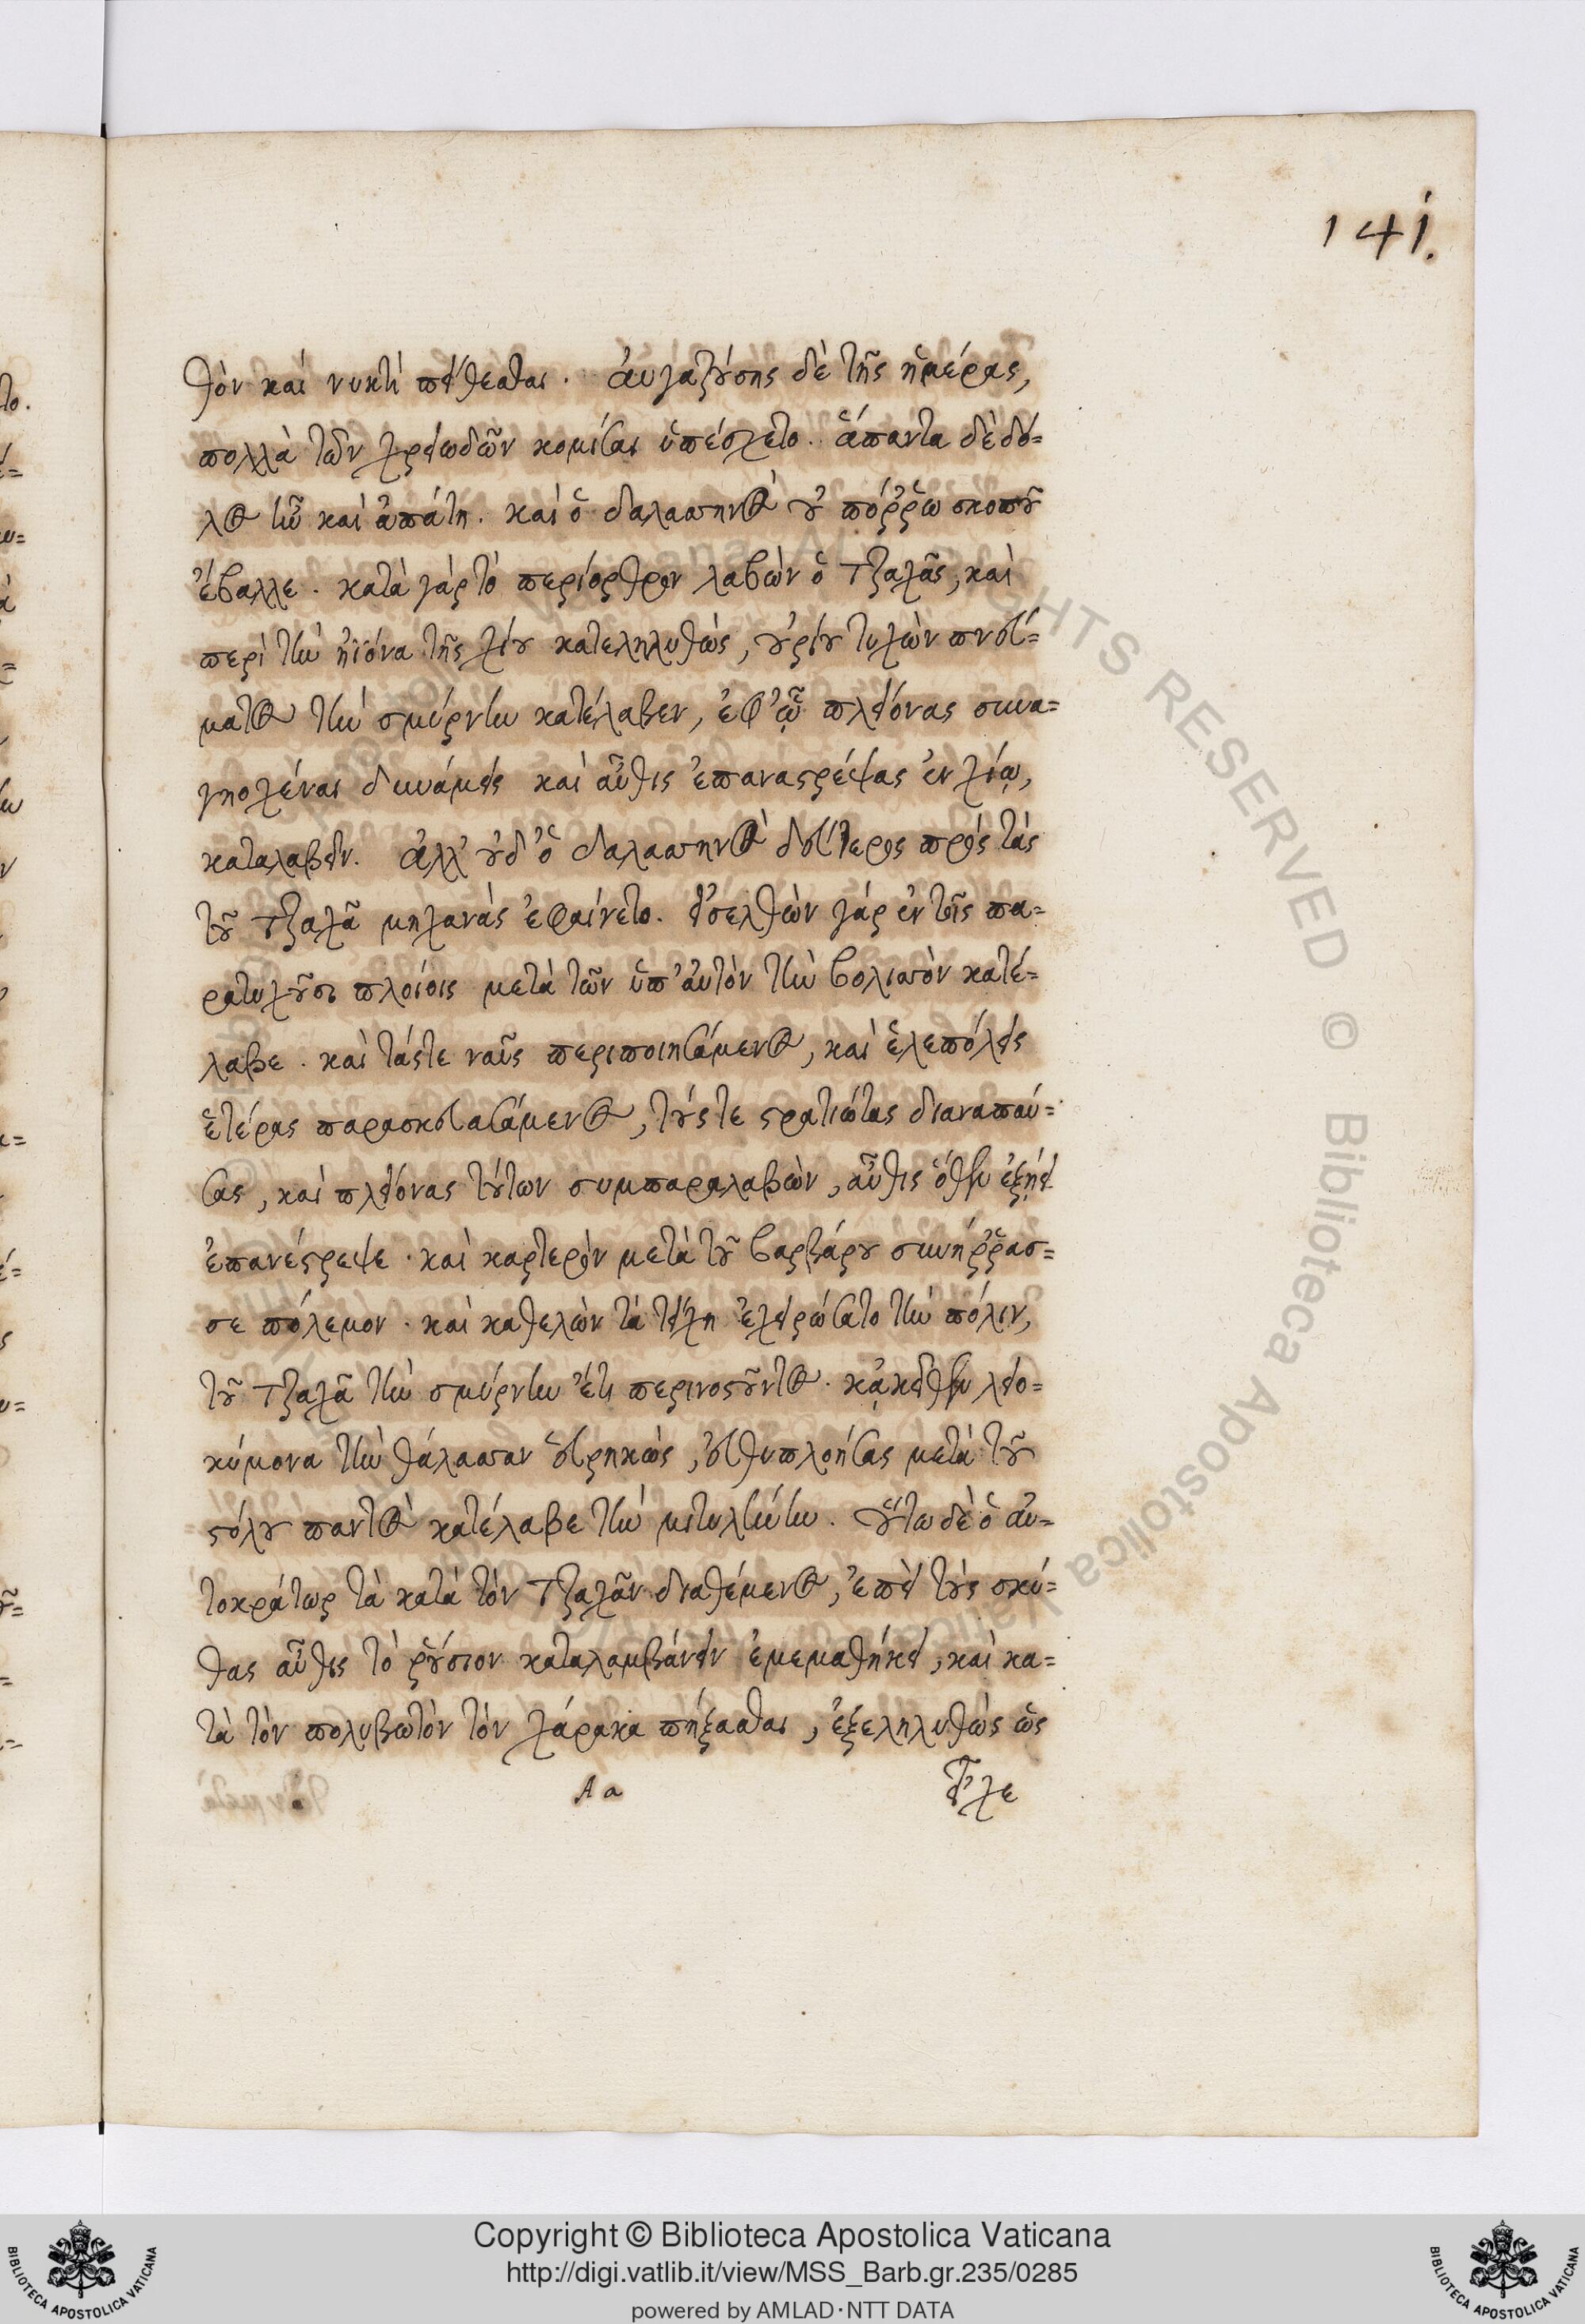 141.
θὸν καὶ νυκτὶ πείθεσθαι. ἀυγαζούσης δὲ τῆς ἡμέρας,
πολλὰ τῶν χρειωδῶν κομίσαι ὑπέσχετο. ἅπαντα δὲ δό=
λος ἦν καὶ ἀπάτη. καὶ ὁ δαλασσηνὸς οὐ πόῤῥω σκοποῦ
ἔβαλλε. κατὰ γὰρ τὸ περίορθρον λαβὼν ὁ Τζαχᾶς, καὶ
περὶ τὴν ἠϊόνα τῆς χίου κατεληλυθὼς, οὐρίου τυχὼν πνεύ=
ματος τὴν σμύρνην κατέλαβεν, ἐφ' ᾧ πλείονας συνα=
γηοχέναι δυνάμεις καὶ αὖθις ἐπαναστρέψας ἐν χίῳ,
καταλαβεῖν. ἀλλ' οὐδ' ὁ δαλασσηνὸς δεύτερος πρὸς τὰς
τοῦ Τζαχᾶ μηχανὰς ἐφαίνετο. εἰσελθὼν γὰρ ἐν τοῖς πα=
ρατυχοῦσι πλοίοις μετὰ τῶν ὑπ' ἀυτὸν τὴν βολισσὸν κατέ=
λαβε. καὶ τάς τε ναῦς περιποιησάμενος, καὶ ἑλεπόλεις
ἑτέρας παρασκευασάμενος, τούς τε στρατιώτας διαναπαύ=
σας, καὶ πλείονας τούτων συμπαραλαβὼν, αὖθις ὅθεν ἐξῄει
ἐπανέστρεψε. καὶ καρτερὸν μετὰ τοῦ βαρβάρου συνήῤῥασ=
σε πόλεμον. καὶ καθελὼν τὰ τείχη ἐχειρώσατο τὴν πόλιν,
τοῦ Τζαχᾶ τὴν σμύρνην ἔτι περινοστοῦντος. κᾀκεῖθεν λειο=
κύμονα τὴν θάλασσαν εὑρηκὼς, εὐθυπλοήσας μετὰ τοῦ
στόλου παντὸς κατέλαβε τὴν μιτυλήνην. οὕτω δὲ ὁ αὐ=
τοκράτωρ τὰ κατὰ τὸν Τζαχᾶν διαθέμενος, ἐπεὶ τοὺς σκύ=
θας αὖθις τὸ ῥούσιον καταλαμβάνειν ἐμεμαθήκει, καὶ κα=
τὰ τὸν πολυβωτὸν τὸν χάρακα πήξασθαι, ἐξεληλυθὼς ὡς
Aa
εἶχε
Copyright © Biblioteca Apostolica Vaticana
http://digi.vatlib.it/view/MSS_Barb.gr.235/0285
powered by AMLAD·NTT DATA